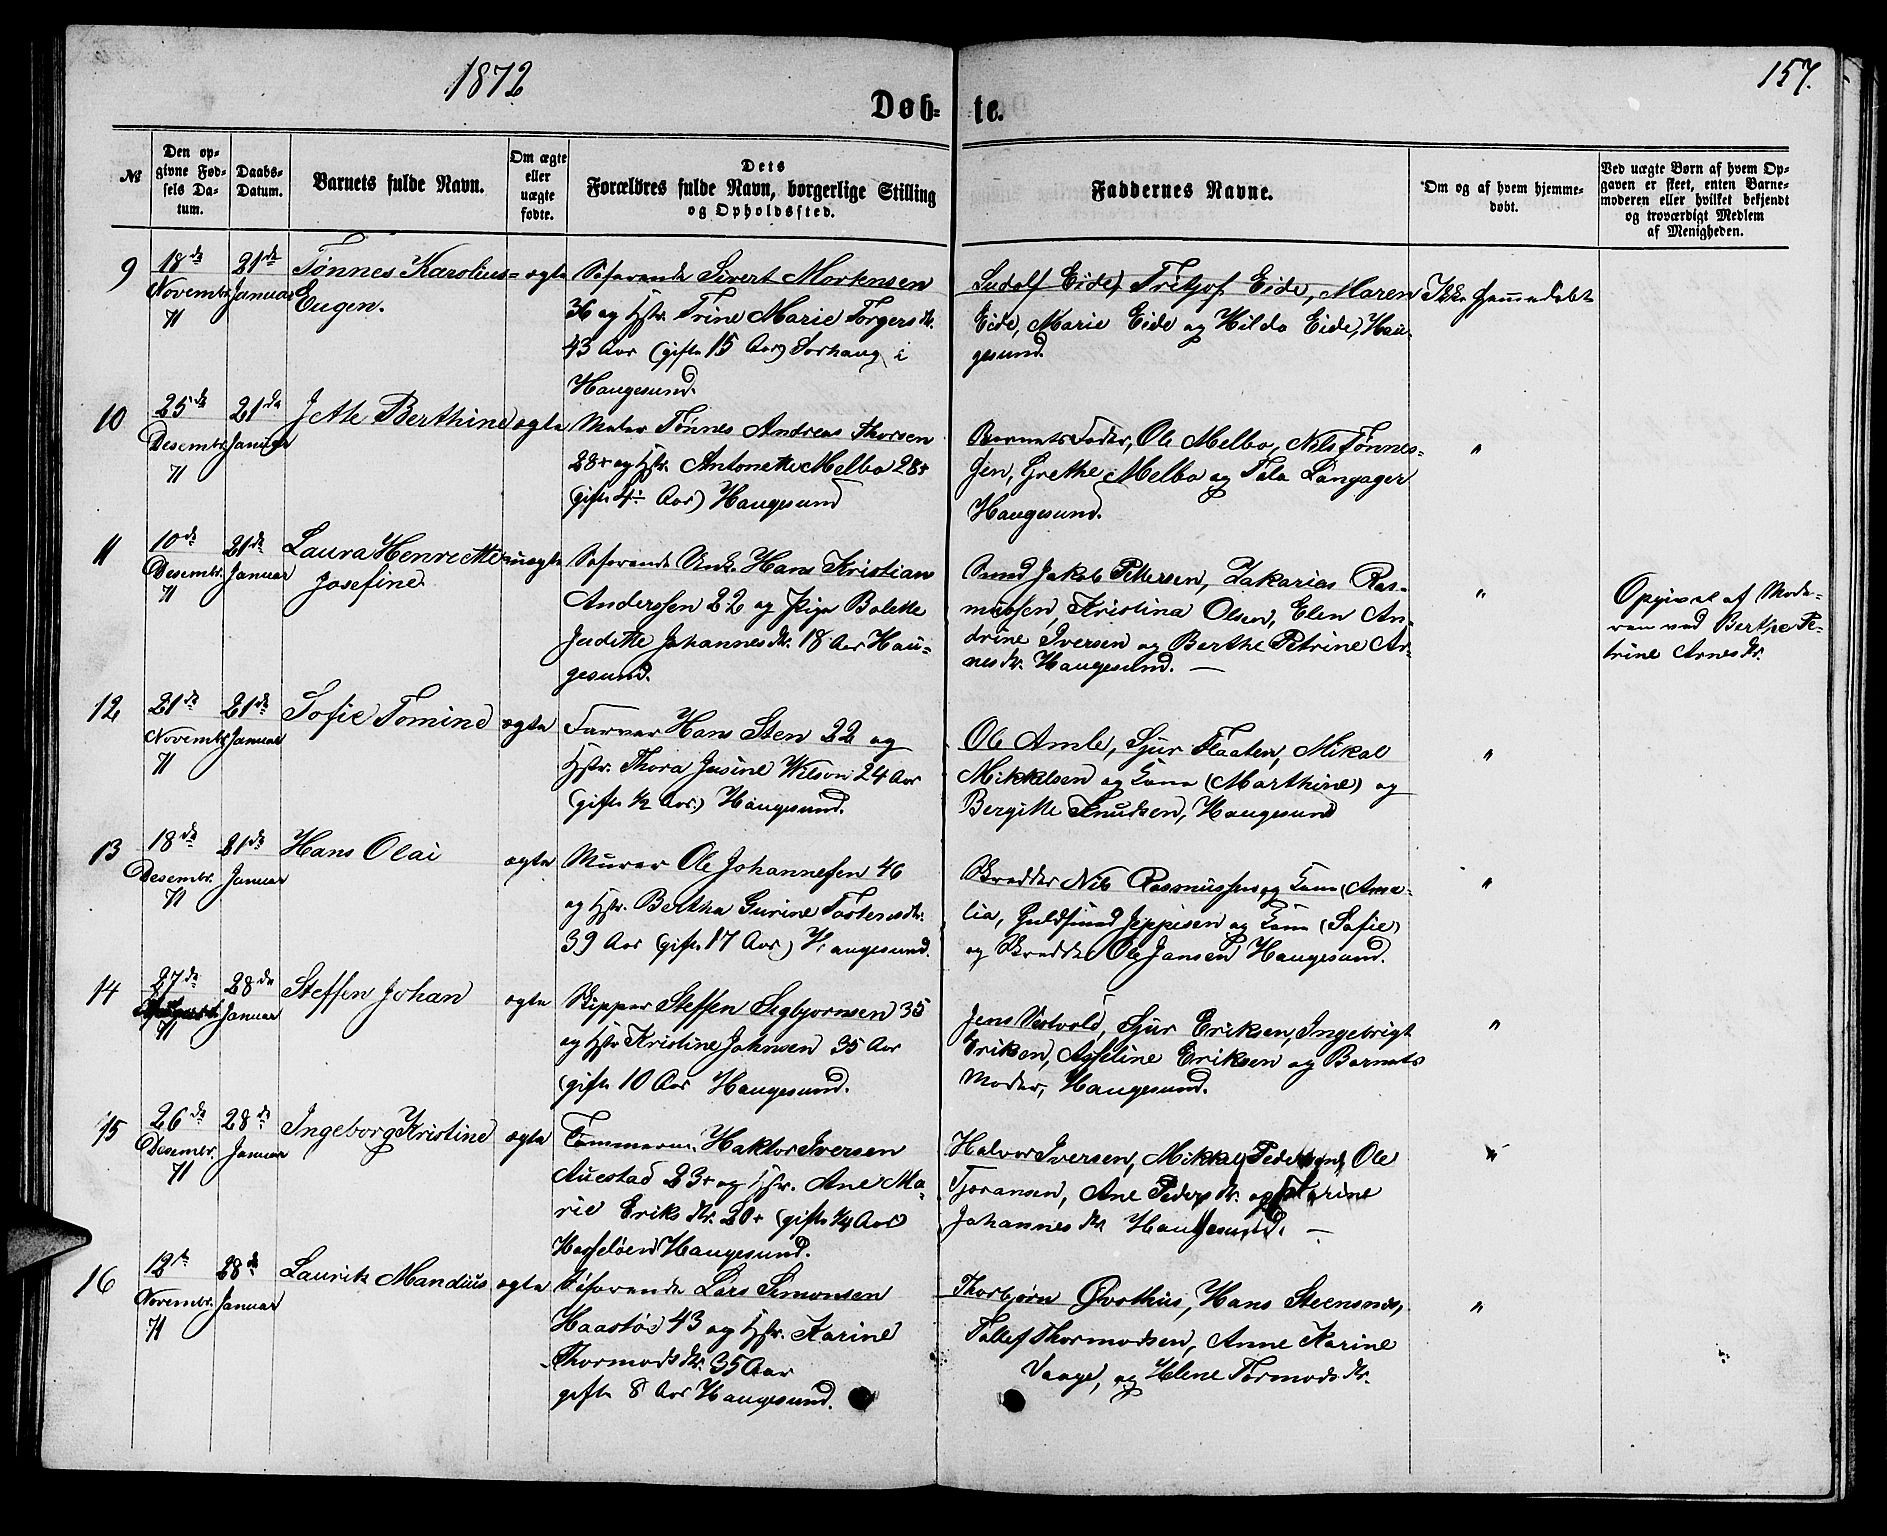 1872
157.
Døb-te.
№
Den opgivne Fødsels Datum.
Daabs-Datum.
Barnets fulde Navn.
Om ægte eller uægte fødte.
Dets Forældres fulde Navn, borgerlige Stilling og Opholdssted.
Faddernes Navne.
Om og af hvem hjemmedøbt.
Ved uægte Børn af hvem Opgaven er skeet, enten Barnemoderen eller hvilket bekjendt og troværdigt Medlem af Menigheden.
9
18de Novembr. 71
21de Januar
Tønnes Karolius Eugen.
ægte
Søfarende Sivert Mortensen
36 og Hstr. Trine Marie Torgersdtr.
43 Aar (gifte 15 Aar) Sørhaug i
Haugesund.
Ludolf Eide, Fritjof Eide, Maren
Eide, Marie Eide og Hilda Eide, Hau-
gesund.
Ikke hjemmedøbt
10
25de Desembr. 71
21de Januar
Jette Berthine
ægte
Maler Tønnes Andreas Thorsen
28+ og Hstr. Antonette Melbo 28+
(gifte 4+ Aar) Haugesund
Barnets Fader, Ole Melbo, Nils Tønnes-
sen, Grethe Melbo og Tala Langager
Haugesund.
"
11
10de Desembr. 71
21de Januar
Laura Henrette
Josefine.
uægte
Søfarende Unk. Hans Kristian
Anderssen 22 og Pige Bolette
Judette Johannesdtr. 18 Aar Hau-
gesund.
Jakob Pettersen, Zakarias Ras-
mussen, Kristina Olsen, Elen An-
drine Iversen og Berthe Petrine Ar-
nesdtr. Haugesund. —
"
Opgivet af Mode-
ren ved Berthe Pe-
trine Arnesdtr.
12
21de Novembr. 71
21de Januar
Sofie Tomine
ægte
Farver Hans Sten 22 og
Hstr. Thora Jusine Wilson 24 Aar
(gifte 1/2 Aar) Haugesund.
Ole Amle, Sjur Flaaten, Mikal
Mikkelsen og Kone (Marthine) og
Bergitte Knudsen, Haugesund
"
13
18de Desembr. 71
21de Januar
Hans Olai
ægte
Murer Ole Johannesen 46
og Hstr. Bertha Gurine Tostensdtr.
39 Aar (gifte 17 Aar) Haugesund.
Skredder Nils Rasmussen og Kone (Ama-
lia, Guldsmed Jeppesen og Kone (Sofie)
og Skredder Ole Jansen Haugesund.
"
14
27de 71
28de Januar
Steffen Johan
ægte
Skipper Steffen Sigbjørnsen 35
og Hstr. Kristine Johnsen 35 Aar
(gifte 10 Aar Haugesund.
Jens Vestvold, Sjur Eriksen, Ingebrigt
Eriksen, Asseline Eriksen og Barnets
Moder, Haugesund.
"
15
26de Desembr. 71
28de Januar
Ingeborg Kristine
ægte
Tømmerm. Haktor Iversen
Auestad 23+ og Hstr. Ane Ma-
rie Eriksdtr. 20+ (gifte 1/4 Aar
Hasseløen Haugesund.
Halvor Iversen, Mikkel Pedersen, Ole
Tjoransen, Ane Pedersdtr. og Karine
Johannesdtr Haugesund. —
"
16
12te Novembr. 71
28de Januar
Laurits Mandius
ægte
Søfarende Lars Simonsen
Haastø 43 og Hstr. Karine
Thormodsdtr. 35 Aar
gifte 8 Aar Haugesund.
Thorbjørn Østhus, Hans Steensnes,
Tollef Thormodsen, Anne Karine
Vaage, og Helene Tormodsdtr.
"